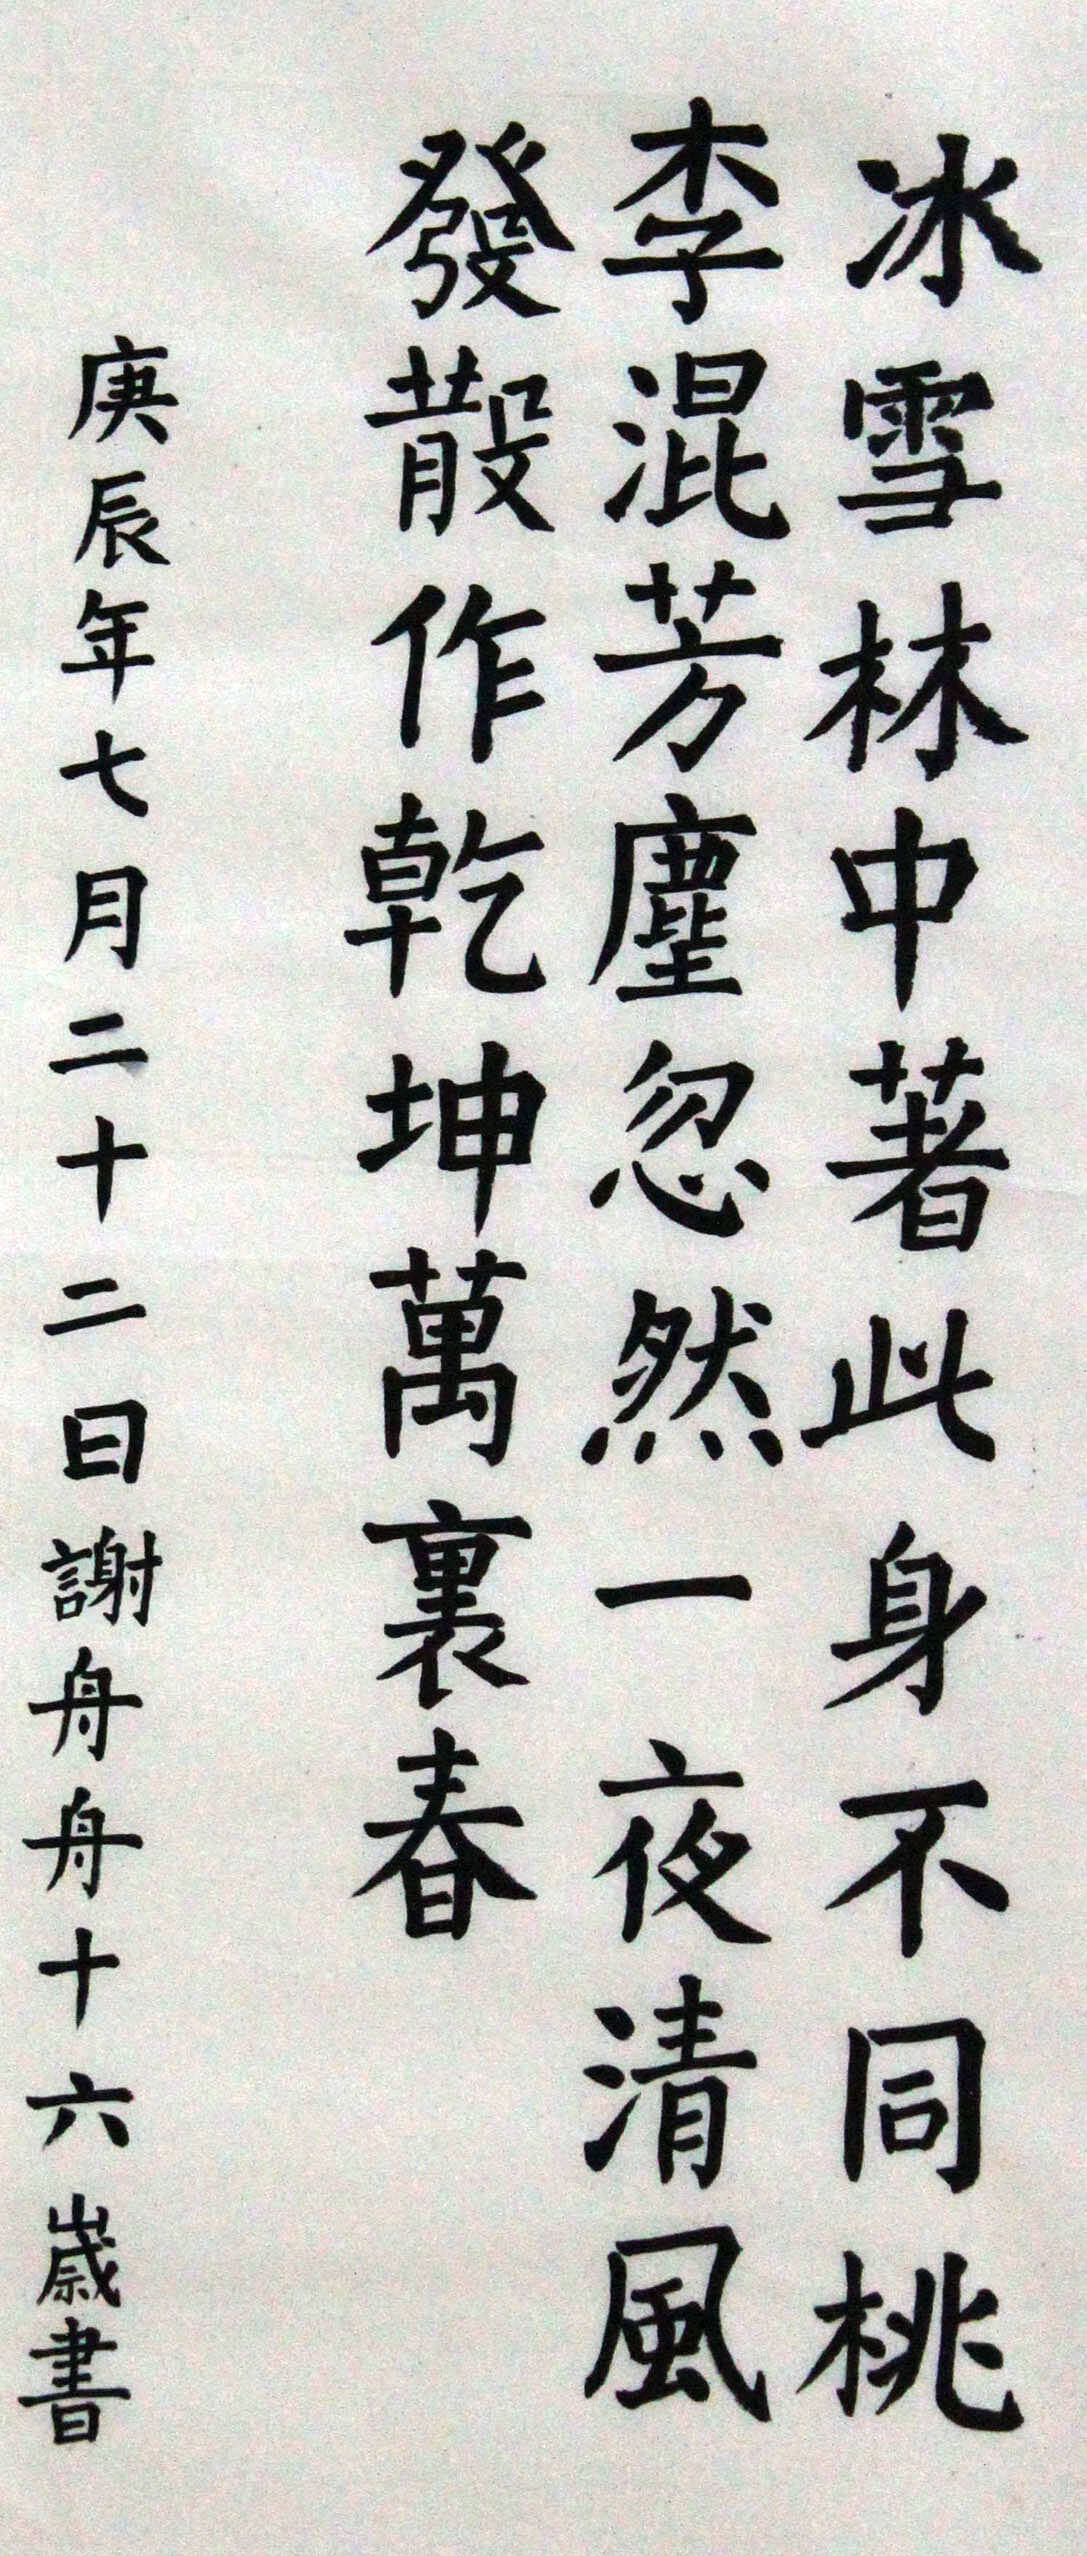 冰雪林中著此身不同桃
李混芳塵忽然一夜清風
發散作乾坤萬裏春
庚辰年七月二十二日謝舟舟十六歲書